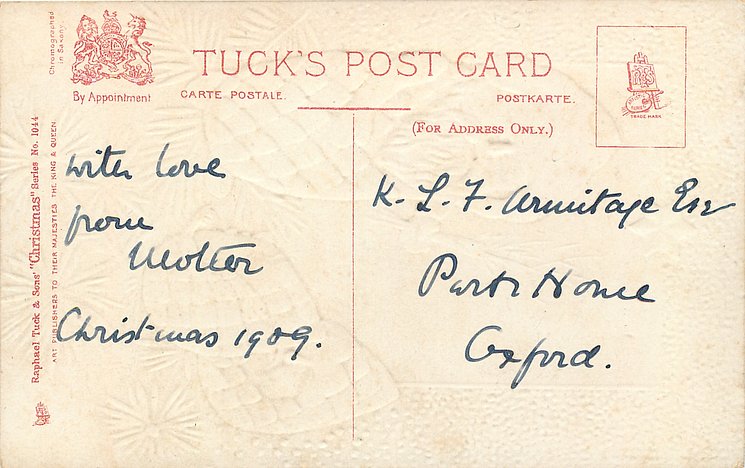 Chromographed
in Saxony
By Appointment
TUCK'S POST CARD
CARTE POSTALE.
POSTKARTE.
(For Address Only.)
TRADE MARK
Raphael Tuck & Sons' "Christmas" Series No. 1044
ART PUBLISHERS TO THEIR MAJESTIES THE KING & QUEEN
with love
from
Mother
Christmas 1909.
K. L. F. Armitage Esq
Park House
Oxford.